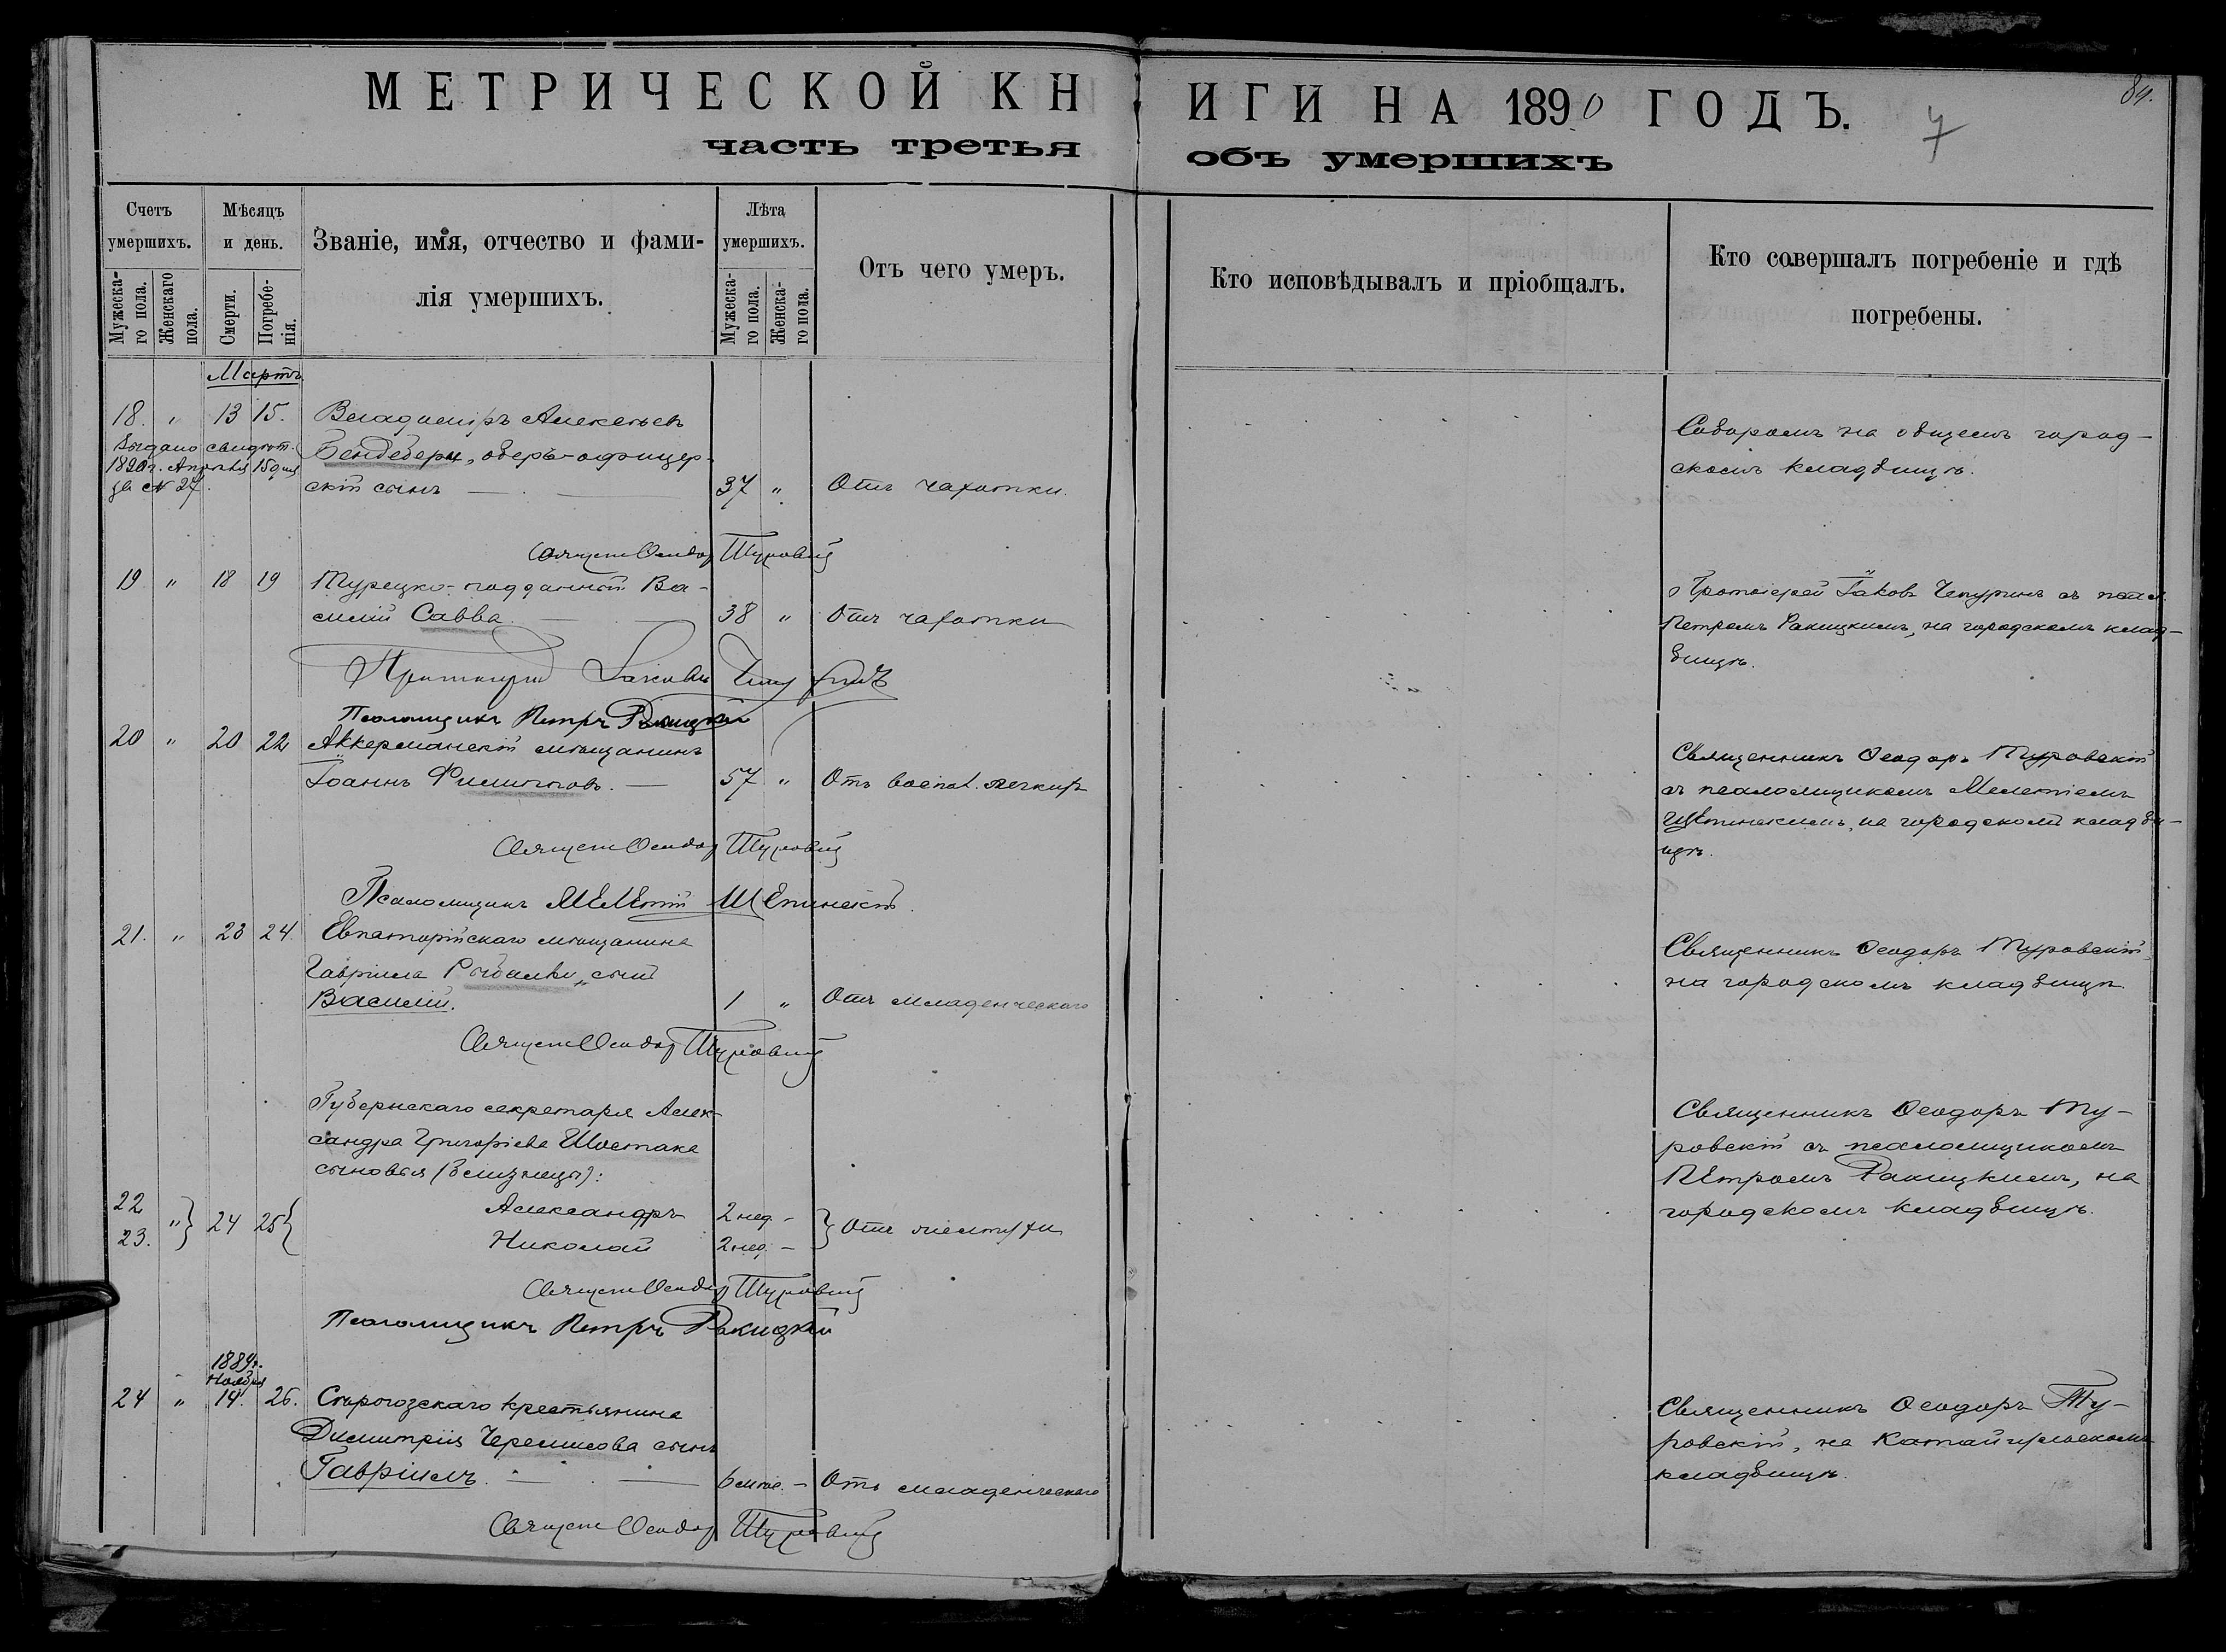 МЕТРИЧЕСКОЙ КНИГИ НА 1890 ГОДЪ.
84.
7
часть третья объ умершихъ
Счетъ умершихъ.
Мужеска-го пола.
Женскаго пола.
Мѣсяцъ и день.
Смерти.
Погребе-нія.
Званіе, имя, отчество и фами-
лія умершихъ.
Лѣта умершихъ.
Мужеска-го пола.
Женска-го пола.
Отъ чего умеръ.
Кто исповѣдывалъ и пріобщалъ.
Кто совершалъ погребеніе и гдѣ
погребены.
Мартъ
18. " 13 15. Владиміръ Алексѣевъ
Выдано свидѣт.
1890 г. Апрѣля 15 дня
за № 27.
Бендебери, оберъ-офицер-
скій сынъ 37 " Отъ чахотки.
Соборомъ на общемъ город-
скомъ кладбищѣ.
Священ Ѳеодор Туровскій
19 " 18 19 Турецко-подданный Ва-
силій Савва. 38 " Отъ чахотки
Протоіерей Іаковъ Чепуринъ съ псал.
Петромъ Ракицкимъ, на городскомъ клад-
бищѣ.
Протоіерей Іаковъ Чепуринъ
Псаломщикъ Петръ Ракицкій
20 " 20 22 Аккерманскій мѣщанинъ
Іоаннъ Филипповъ. 57 " Отъ воспал. легкихъ
Священникъ Ѳеодоръ Туровскій
съ псаломщикомъ Мелетіемъ
Щепинскимъ, на городскомъ кладби-
щѣ.
Священ Ѳеодор Туровскій
Псаломщикъ Мелетій Щепинскій.
21. " 23 24. Евпаторійскаго мѣщанина
Гавріила Рыбалки, сынъ
Василій. 1 " Отъ младенческаго
Священникъ Ѳеодоръ Туровскій,
на городскомъ кладбищѣ.
Священ Ѳеодор Туровскій
Губернскаго секретаря Алек-
сандра Григоріева Шостака
сыновья (близнецы):
22 " 24 25 Александръ 2 нед. -
23. Николай 2 нед. - Отъ
Священникъ Ѳеодоръ Ту-
ровскій съ псаломщикомъ
Петромъ Ракицкимъ, на
городскомъ кладбищѣ.
Священ Ѳеодор Туровскій
Псаломщикъ Петръ Ракицкій
1889 г.
Ноября
24 " 14. 26. Старогозскаго крестьянина
Димитрія Черемисова сынъ
Гавріилъ. 6 мѣс. - Отъ младенческаго
Священникъ Ѳеодоръ Ту-
ровскій, на
кладбищѣ.
Священ Ѳеодор Туровскій